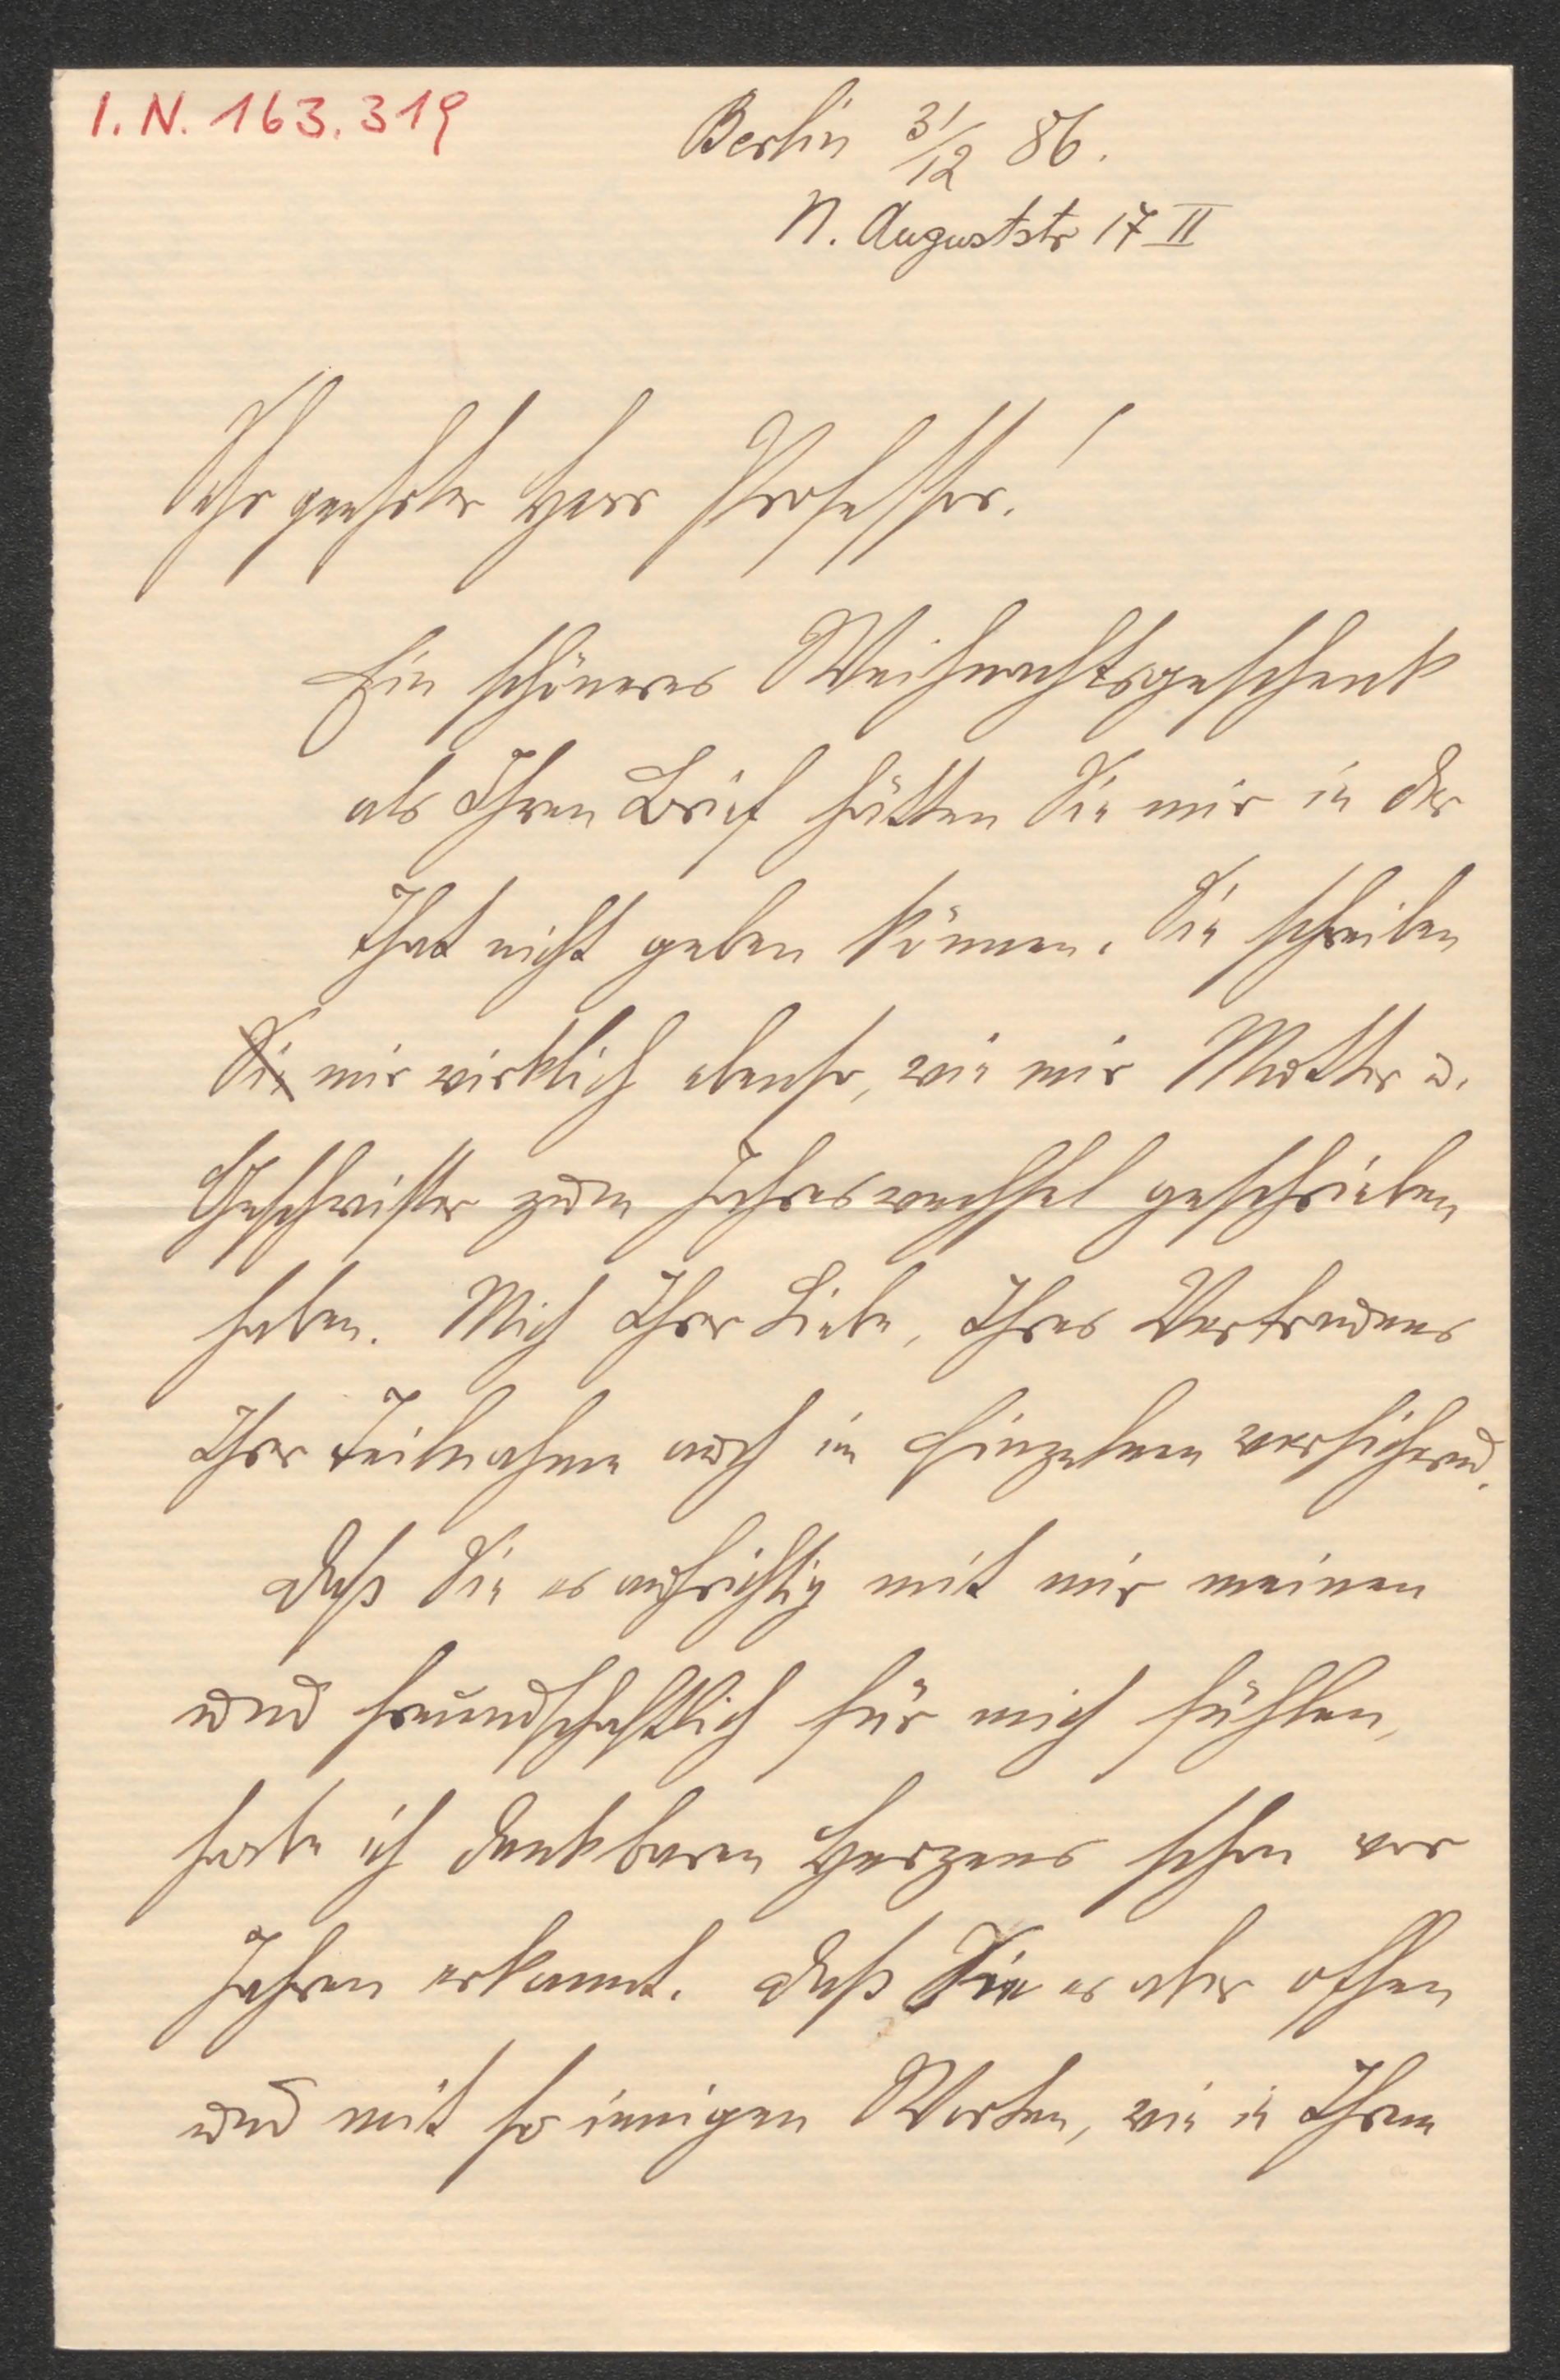 I. N. 163.319
Berlin 31/12 86.
N. Auguststr 17 II
Sehr geehrter Herr Professor!
Ein schöneres Weihnachtsgeschenk
als Ihren Brief hätten Sie mir in der
That nicht geben können. Sie schreiben
Sie mir wirklich ebenso, wie mir Mutter u.
Geschwister zum Jahreswechsel geschrieben
haben. Mich Ihrer Liebe, Ihres Vertrauens
Ihrer Teilnahme auch im Einzelnen versichernd.
Daß Sie es aufrichtig mit mir meinen
und freundschaftlich für mich fühlen,
habe ich dankbaren Herzens schon vor
Jahren erkannt. Daß Sie es aber offen
und mit so innigen Worten, wie in Ihrem